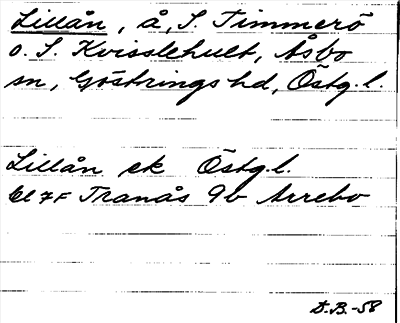 Lillån, å, S. Timmerö
o. S. Kvisslehult, Åsbo
sn, Göstrings hd, Östg.l.
Lillån ek Östg.l.
7F Tranås 9b Arrebo
D.B.-58